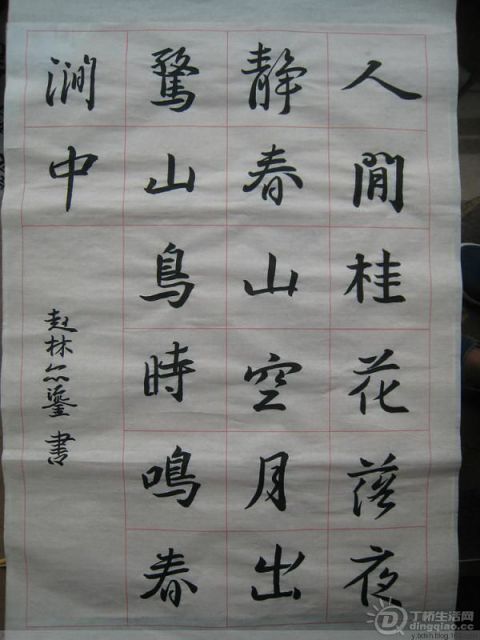 人閒桂花落夜
静春山空月出
驚山鳥時鳴春
澗中
赵林 鎏 書
丁桥生活网
dingqiao.cc